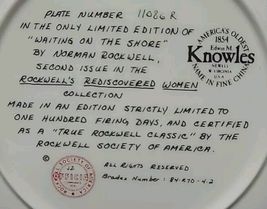 PLATE NUMBER 11086 R
IN THE ONLY LIMITED EDITION OF
"WAITING ON THE SHORE"
BY NORMAN ROCKWELL,
SECOND ISSUE IN THE
ROCKWELL'S REDISCOVERED WOMEN
COLLECTION
MADE IN AN EDITION STRICTLY LIMITED TO
ONE HUNDRED FIRING DAYS, AND CERTIFIED
AS A "TRUE ROCKWELL CLASSIC" BY THE
ROCKWELL SOCIETY OF AMERICA.
©
ALL RIGHTS RESERVED
Bradex Number: 84-R70-4.2
AMERICA'S OLDEST
1854
Edwin M.
Knowles
NEWELL
W. VIRGINIA
U.S.A.
NAME IN FINE CHINA
SOCIETY OF AMERICA